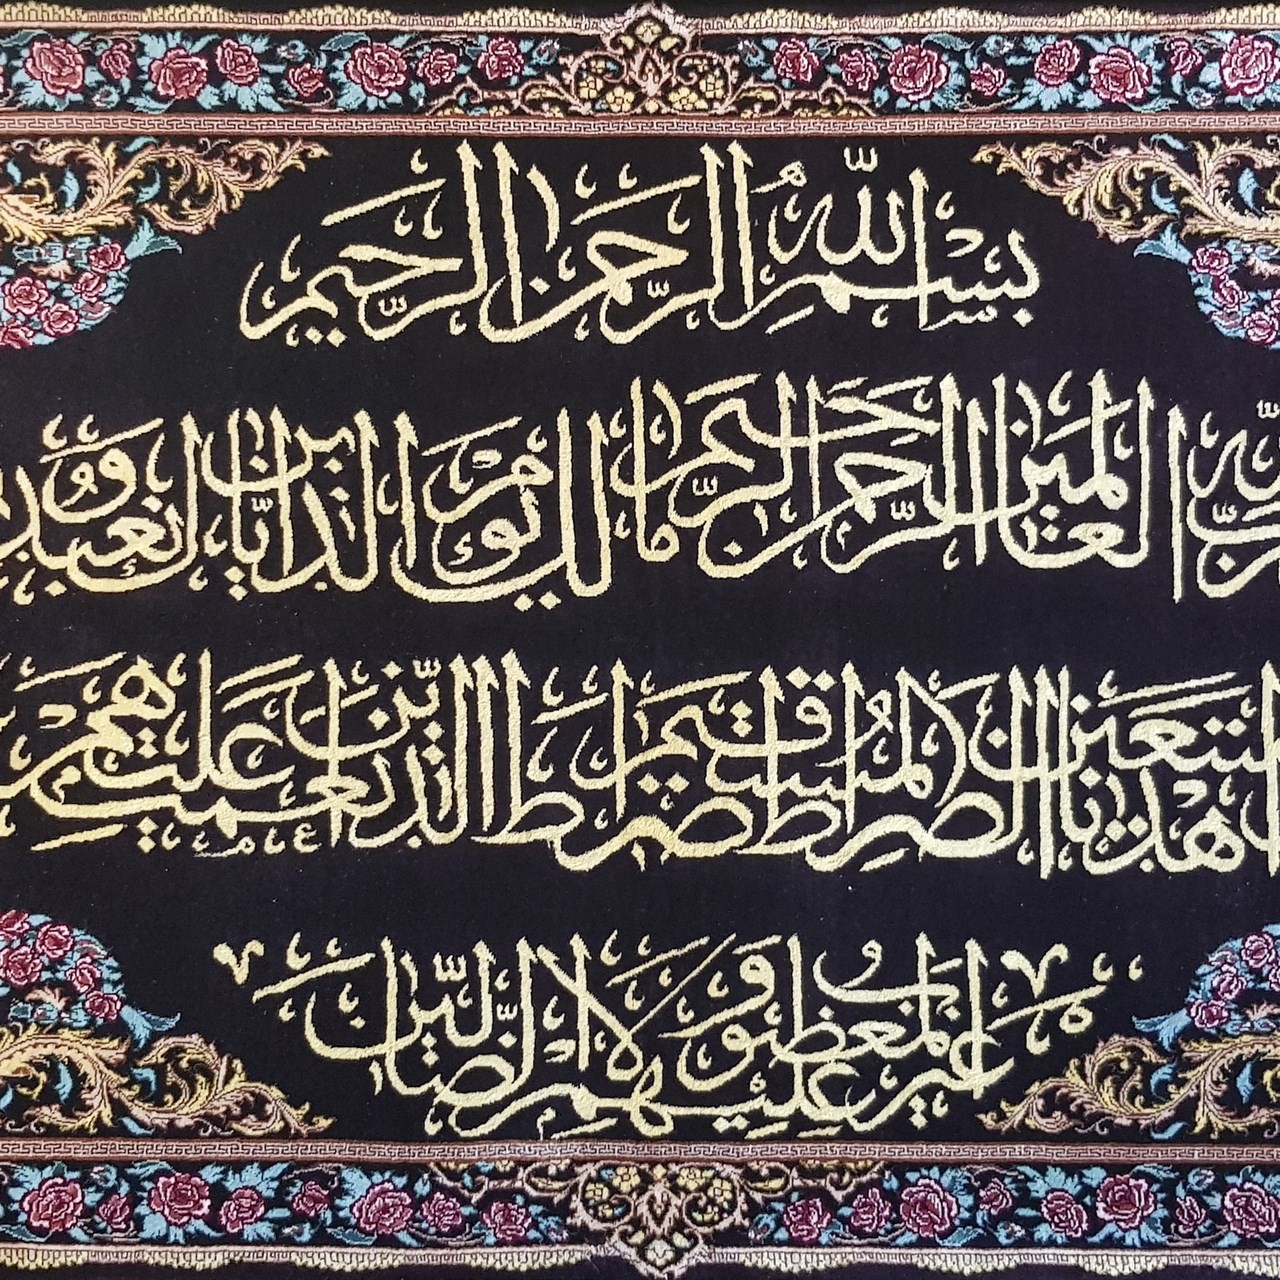 بسم الله الرحمن الرحيم
رب العالمين الرحمن الرحيم مالك يوم الدين اياك نعبد و
نستعين اهدنا الصراط المستقيم صراط الذين انعمت عليهم
غير المغضوب عليهم ولا الضالين